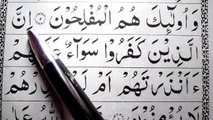 وَ اُولٰٓئِكَ هُمُ الْمُفْلِحُوْنَ ۝ اِنَّ
الَّذِيْنَ كَفَرُوْا سَوَآءٌ عَلَيْهِمْ
ءَاَنْذَرْتَهُمْ اَمْ لَمْ